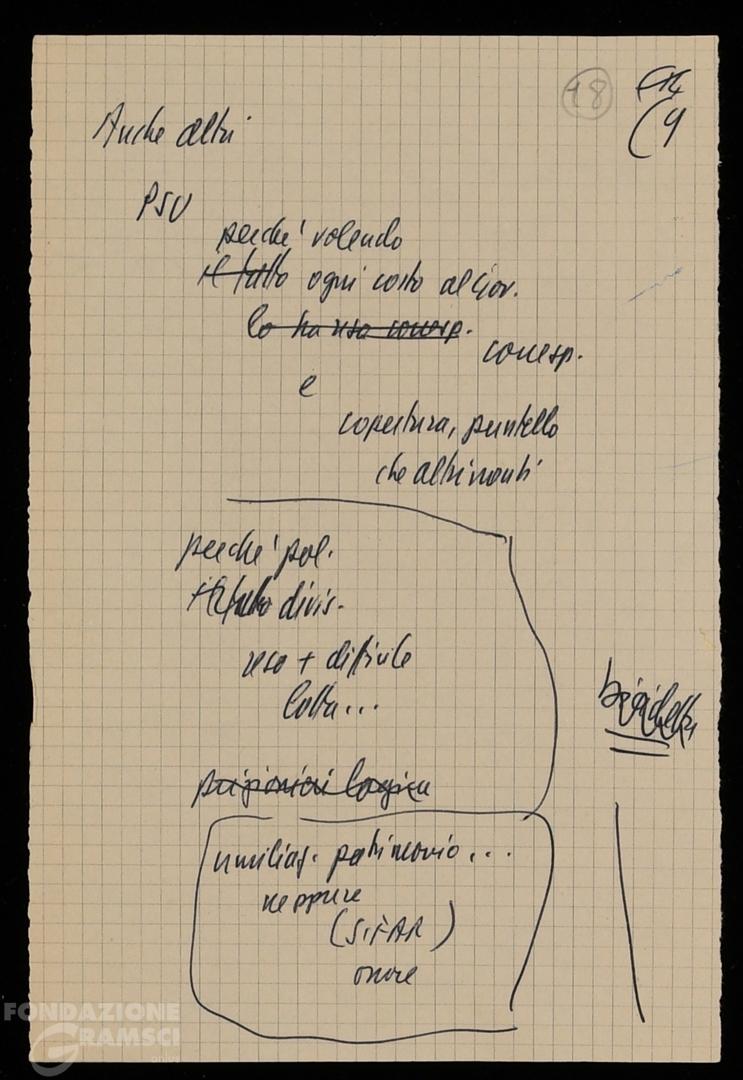 18
(9
Anche altri
PSU
perché volendo
il tutto ogni costo al Gov.
lo ha reso corresp.
corresp.
e
copertura, puntello
che altrimenti
perché pol.
divis.
reso + difficile
lotta...
prigionieri logica
umiliaz. patrimonio...
neppure
(SIFAR)
onore
FONDAZIONE
GRAMSCI
onlus